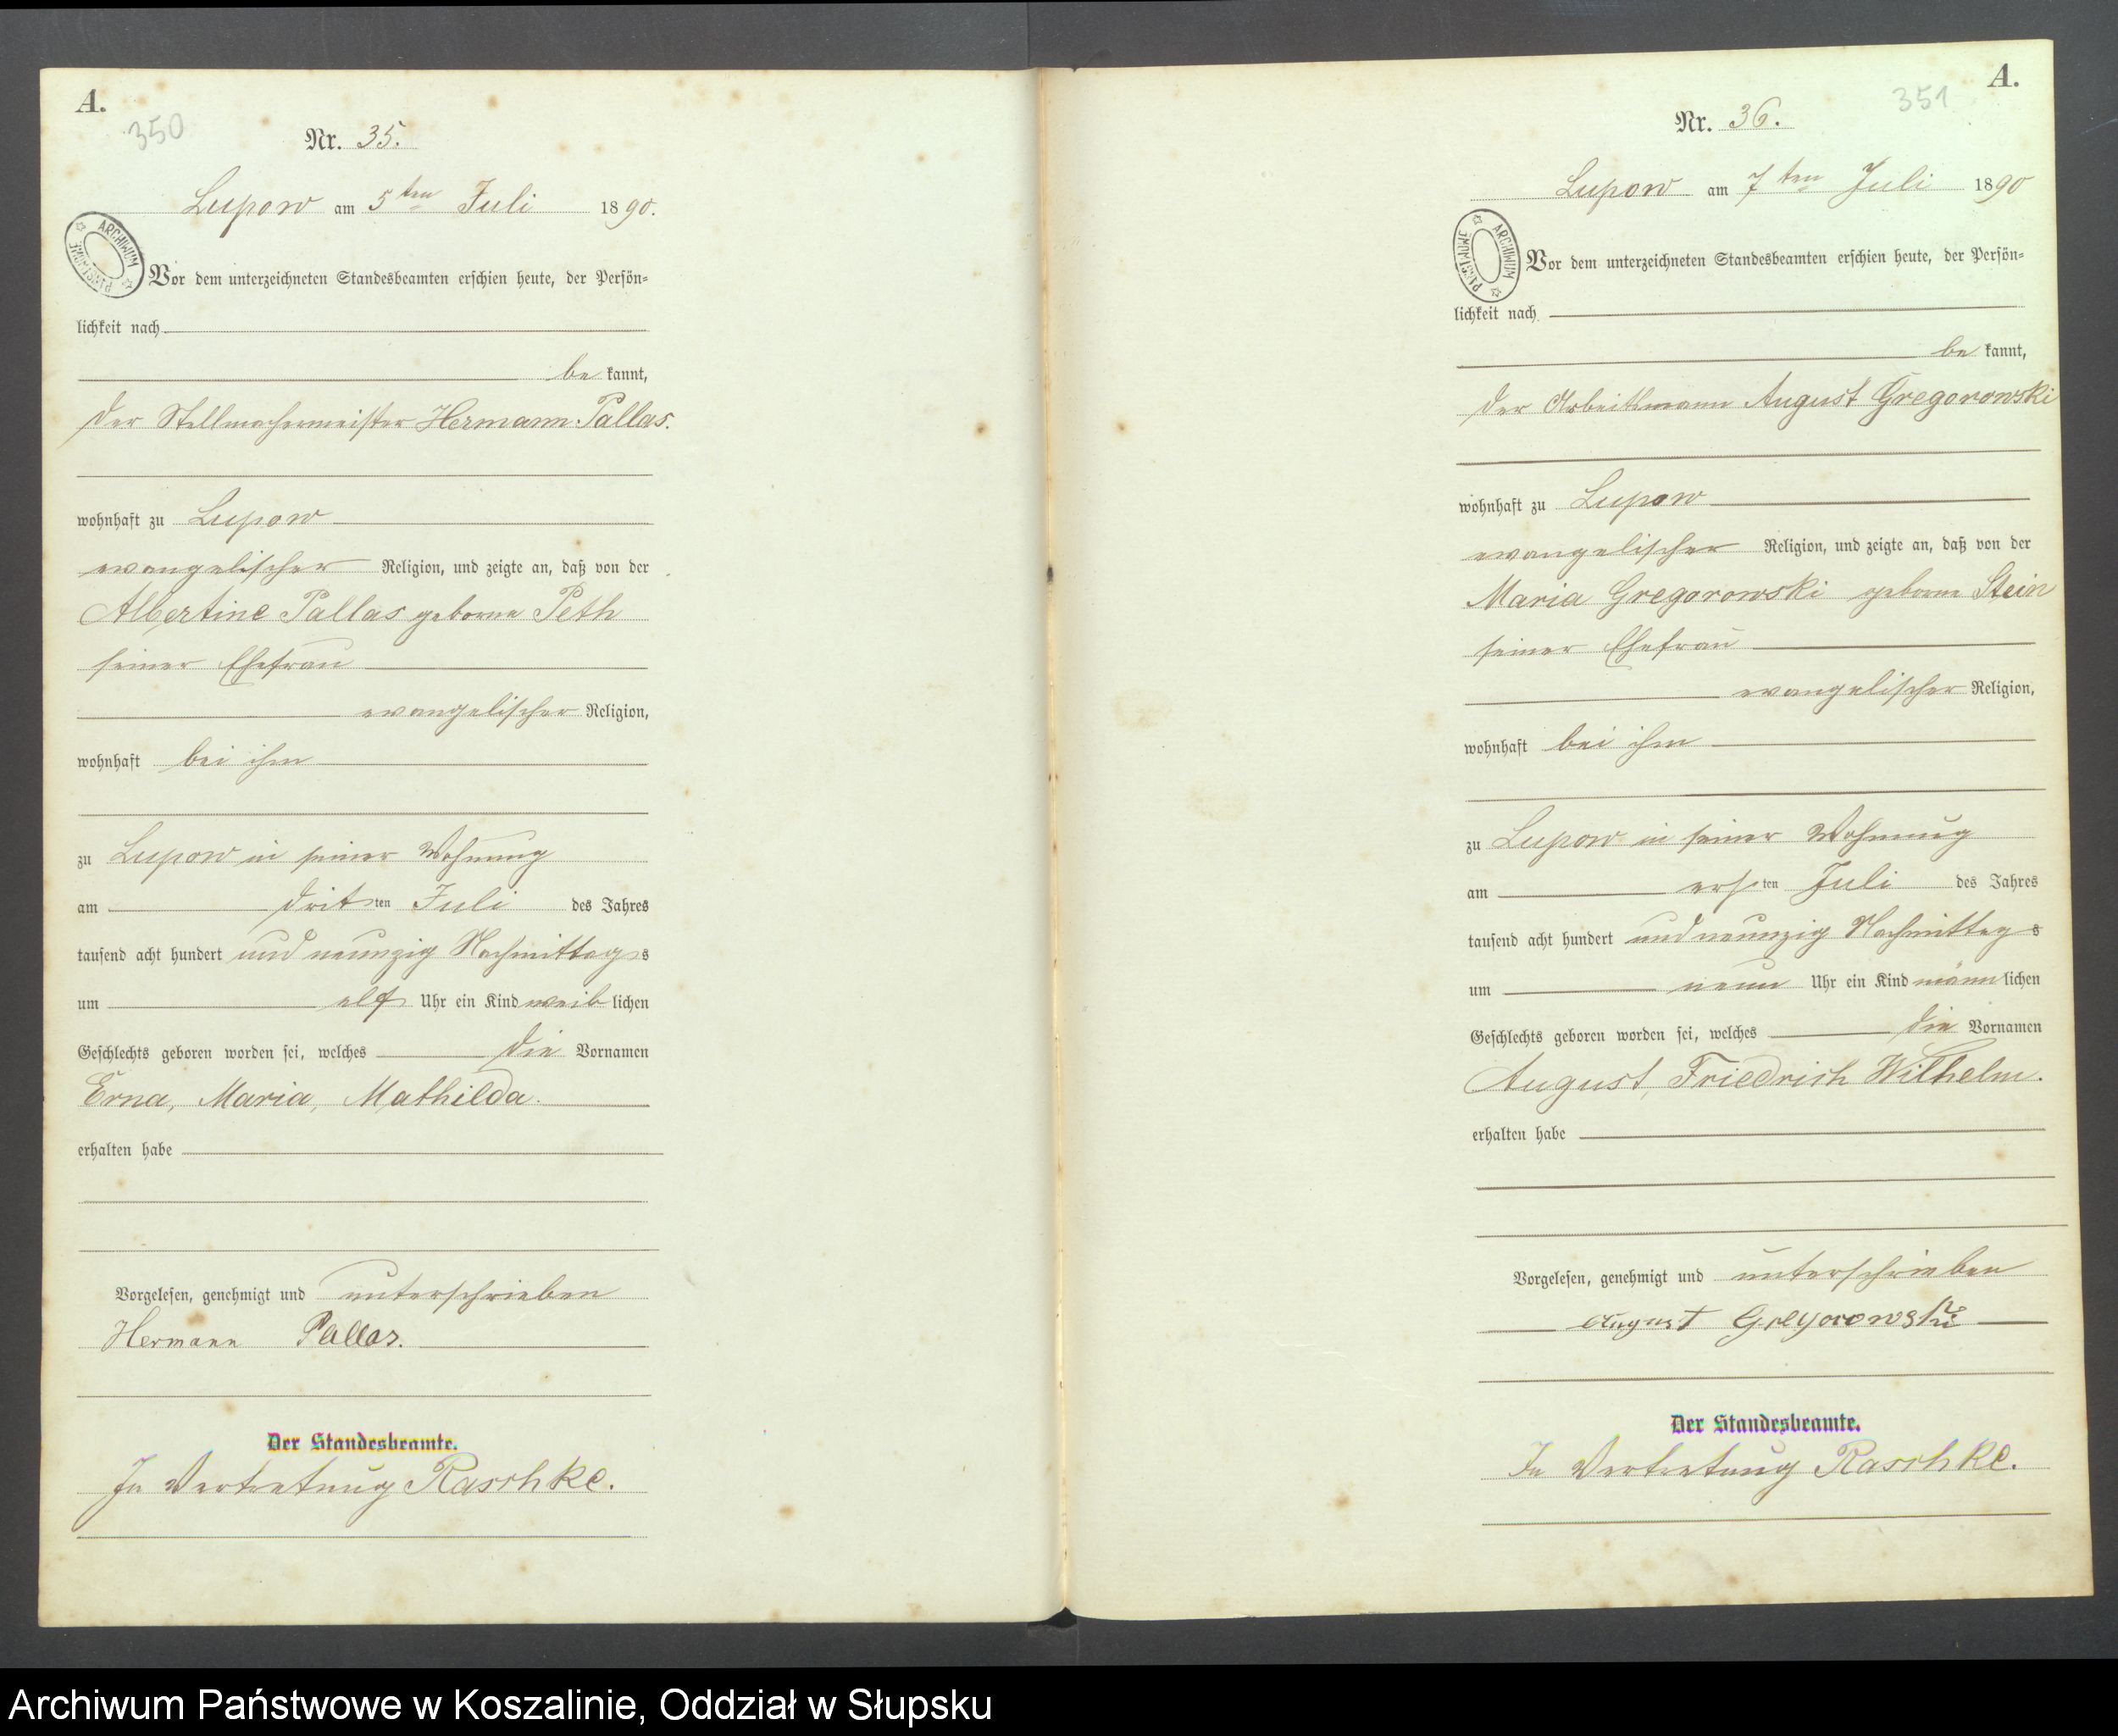 A.
350
Nr. 35.
Lupow am 5ten Juli 1890.
ARCHIWUM PAŃSTWOWE
Vor dem unterzeichneten Standesbeamten erschien heute, der Persön-
lichkeit nach
be kannt,
der Stellmachermeister Hermann Pallas.
wohnhaft zu Lupow
evangelischer Religion, und zeigte an, daß von der
Albertine Pallas geborne Peth
seiner Ehefrau
evangelischer Religion,
wohnhaft bei ihm
zu Lupow in seiner Wohnung
am dritten Juli des Jahres
tausend acht hundert und neunzig Nachmittags
um elf Uhr ein Kind weiblichen
Geschlechts geboren worden sei, welches die Vornamen
Erna, Maria, Mathilda.
erhalten habe
Vorgelesen, genehmigt und unterschrieben
Hermann Pallas.
Der Standesbeamte.
In Vertretung Raschke.
A.
351
Nr. 36.
Lupow am 7ten Juli 1890
ARCHIWUM PAŃSTWOWE
Vor dem unterzeichneten Standesbeamten erschien heute, der Persön-
lichkeit nach
be kannt,
der Arbeitsmann August Gregorowski
wohnhaft zu Lupow
evangelischer Religion, und zeigte an, daß von der
Maria Gregorowski geborne Stein
seiner Ehefrau
evangelischer Religion,
wohnhaft bei ihm
zu Lupow in seiner Wohnung
am ersten Juli des Jahres
tausend acht hundert und neunzig Nachmittags
um neun Uhr ein Kind männlichen
Geschlechts geboren worden sei, welches die Vornamen
August, Friedrich Wilhelm.
erhalten habe
Vorgelesen, genehmigt und unterschrieben
August Gregorowski
Der Standesbeamte.
In Vertretung Raschke.
Archiwum Państwowe w Koszalinie, Oddział w Słupsku